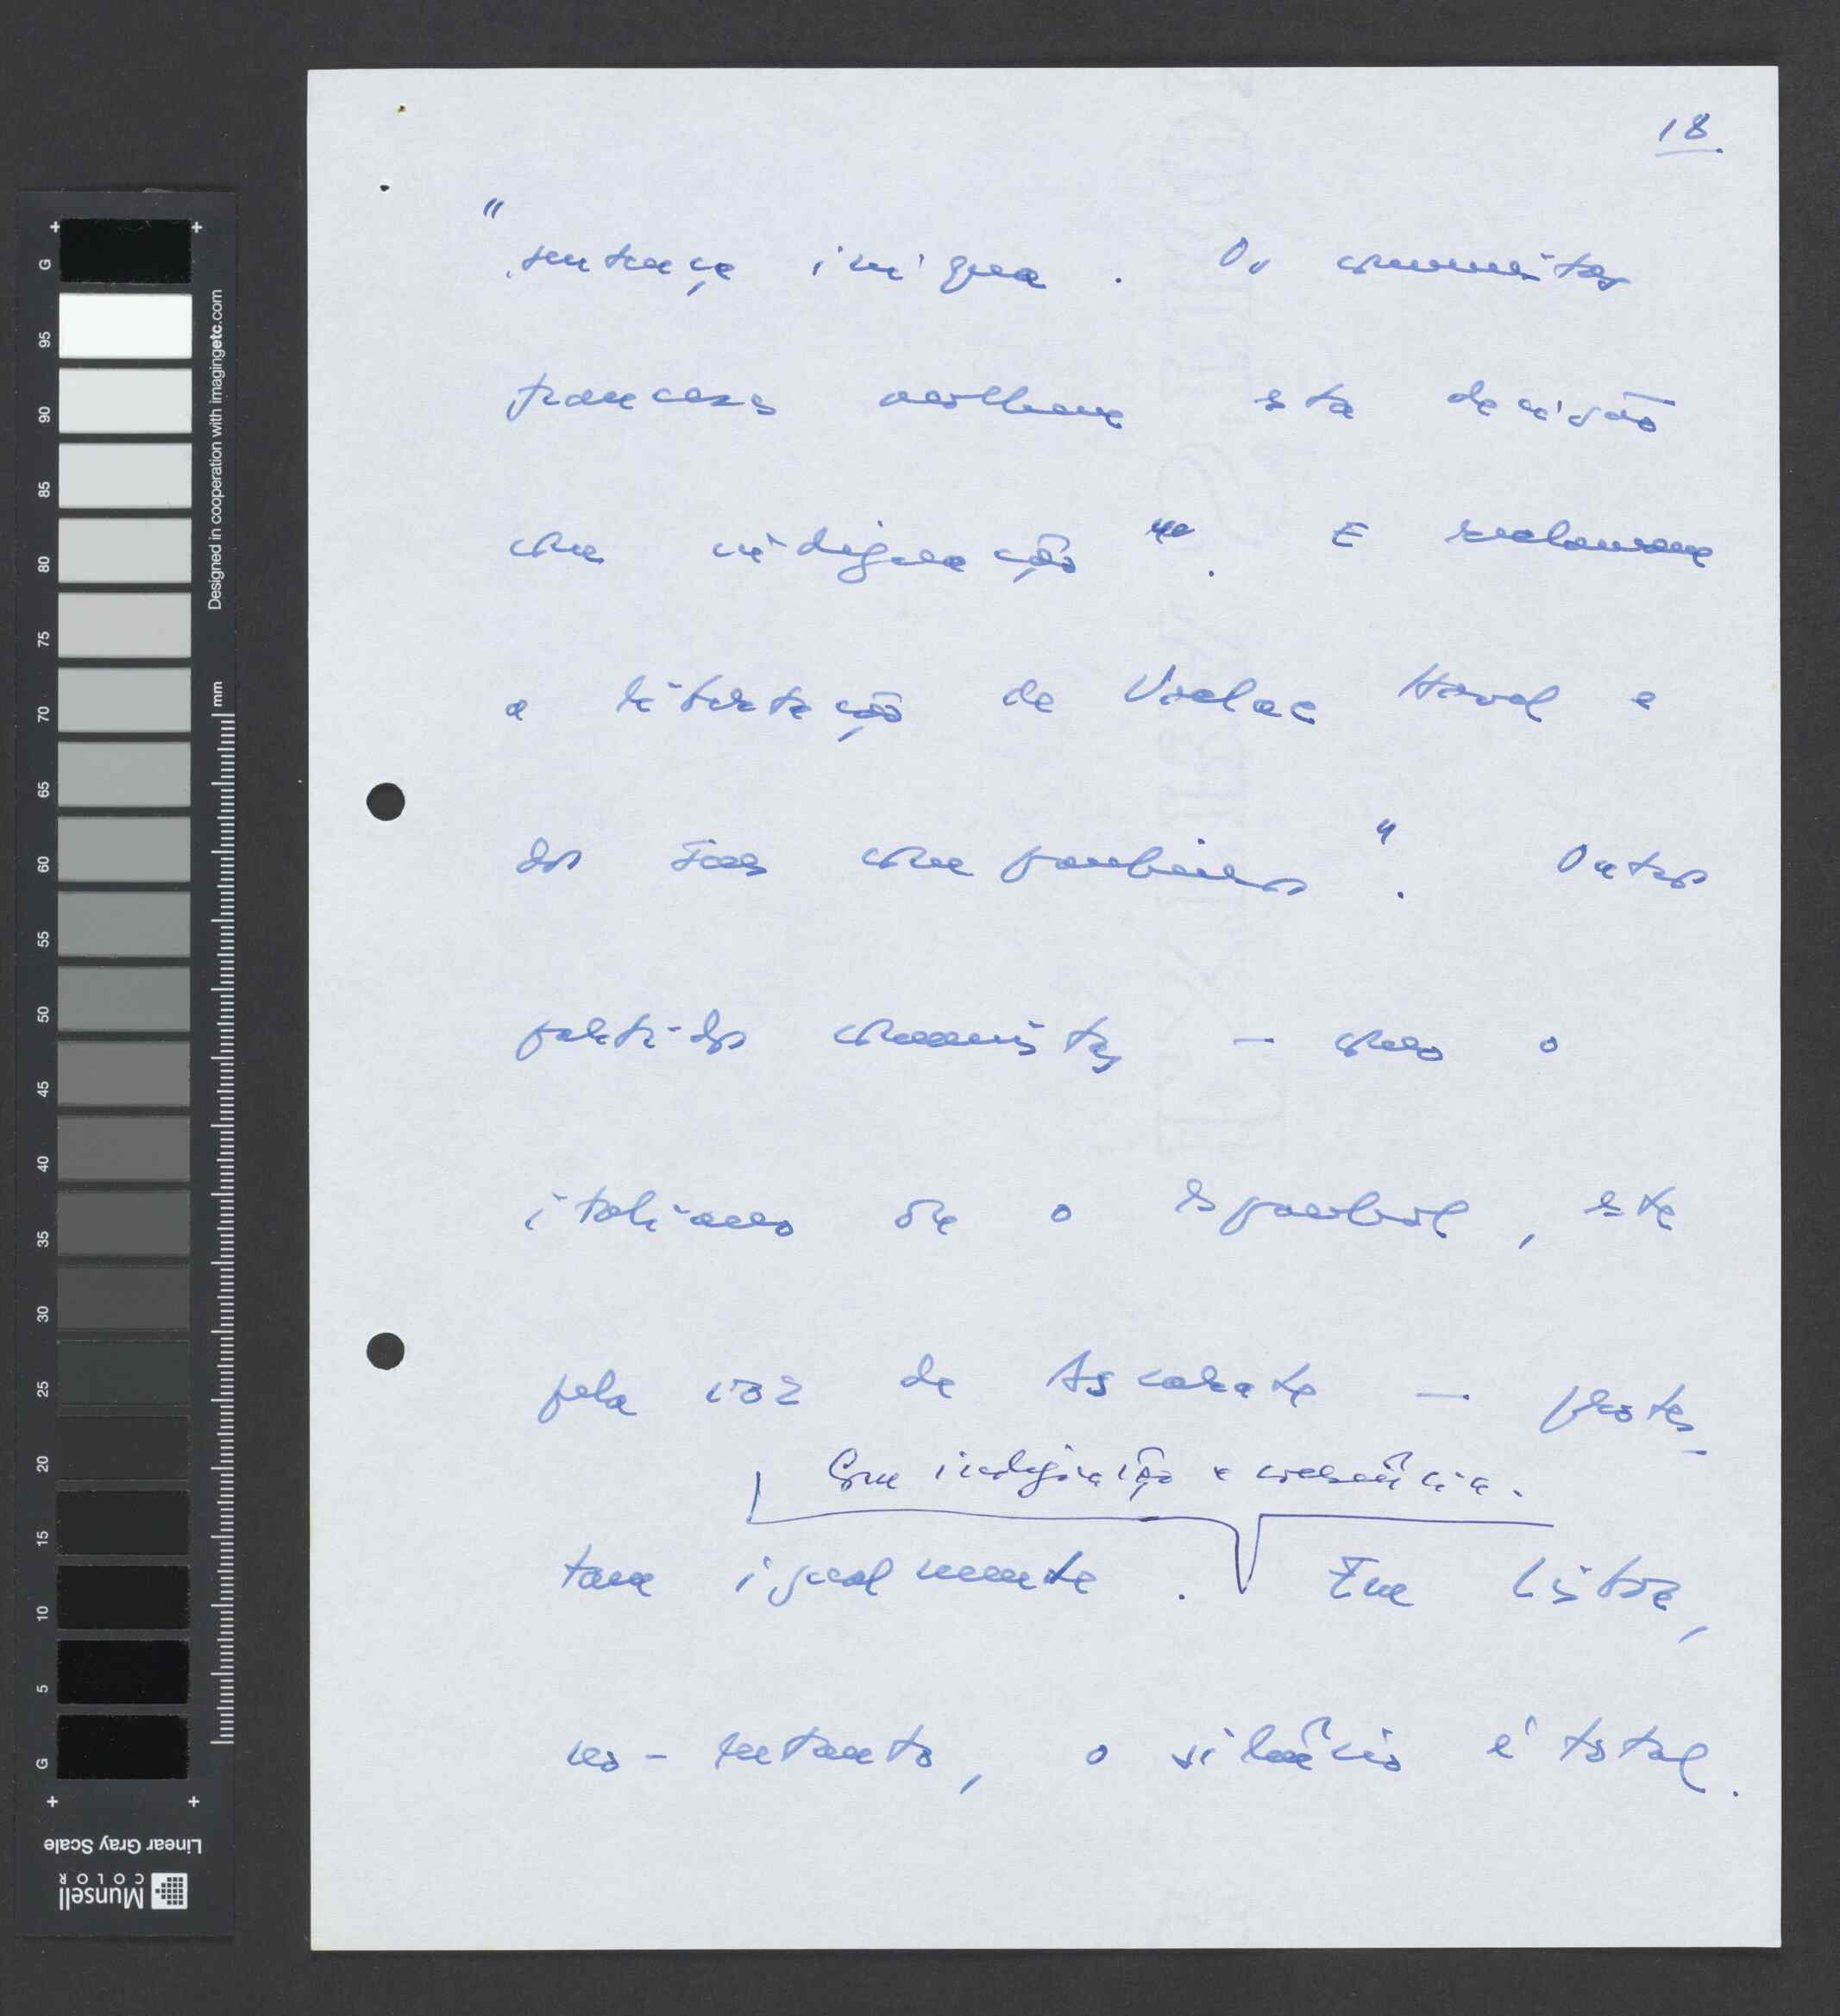 18
"sentença iníqua. Os comunistas
franceses acolhem esta decisão
com indignação". E reclamam
a libertação de Vaclac Havel e
dos seus companheiros". Outros
partidos comunistas — como o
italiano ou o espanhol, este
pela voz de Ascarate — protes-
Com indignação e veemência.
tam igualmente. Em Lisboa,
no-entanto, o silêncio é total.
G 95 90 85 80 75 70 65 60 55 50 45 40 35 30 25 20 15 10 5 G
Designed in cooperation with imagingetc.com
mm
Linear Gray Scale
Munsell
COLOR